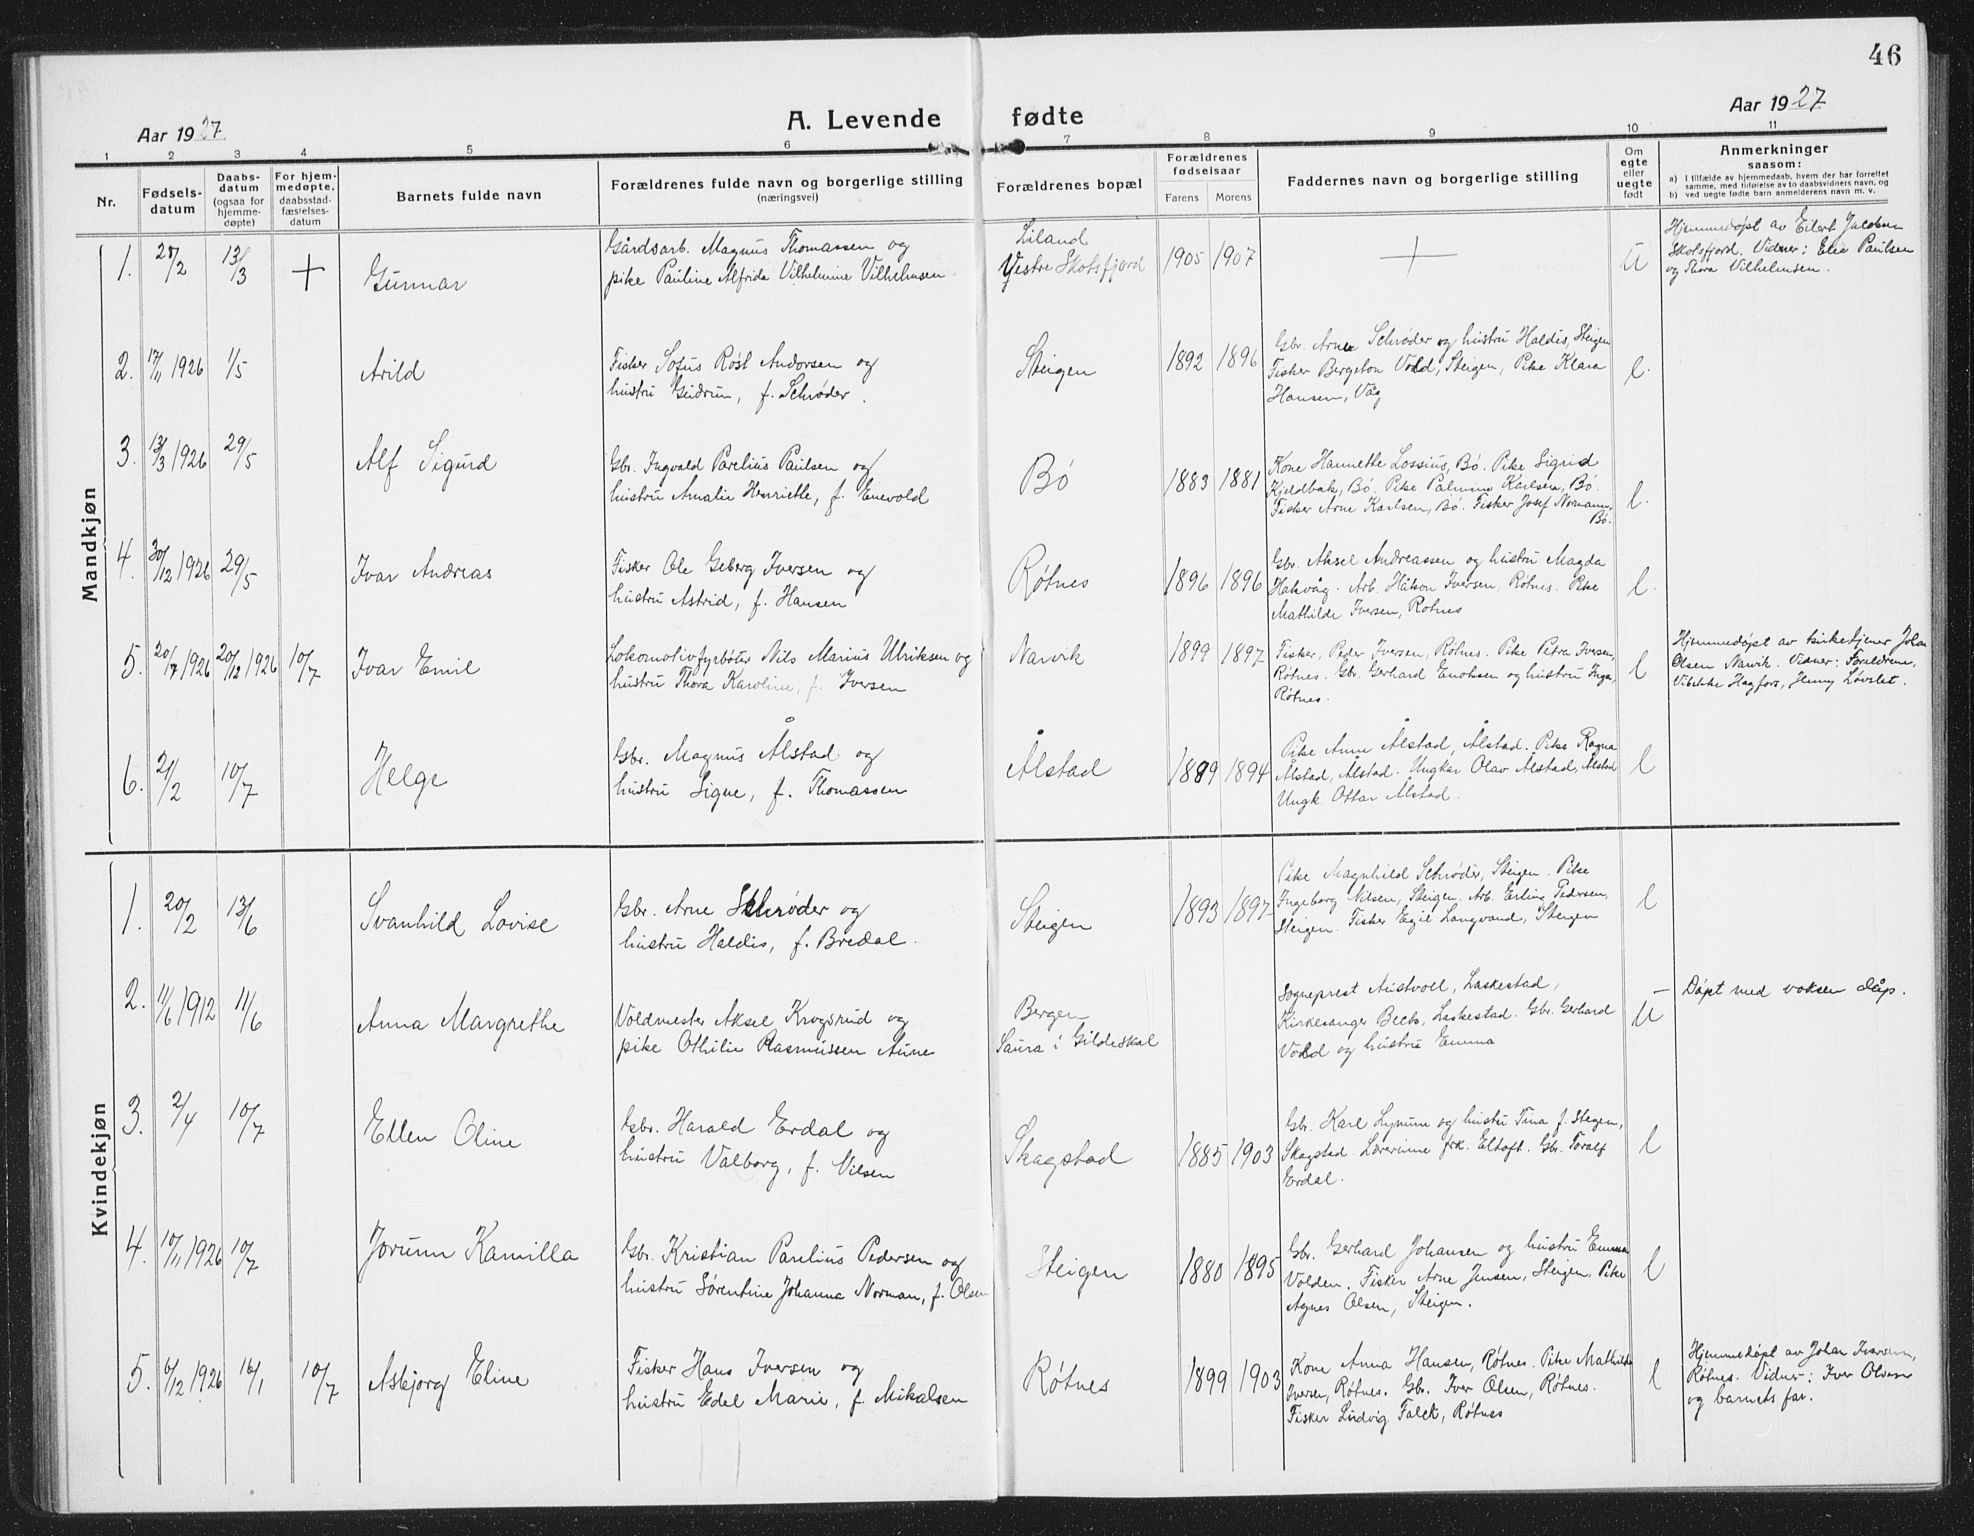 46
Aar 1927
A. Levende fødte
Aar 1927
1 2 3 4 5 6 7 8 9 10 11
Nr.
Fødsels-
datum
Daabs-
datum
(ogsaa for
hjemme-
døpte)
For hjem-
medøpte,
daabsstad-
fæstelses-
datum
Barnets fulde navn
Forældrenes fulde navn og borgerlige stilling
(næringsvei)
Forældrenes bopæl
Forældrenes
fødselsaar
Farens Morens
Faddernes navn og borgerlige stilling
Om
egte
eller
uegte
født
Anmerkninger
saasom:
a) I tilfælde av hjemmedaab, hvem der har forrettet
samme, med tilføielse av to daabsvidners navn, og
b) ved uegte fødte barn anmelderens navn m. v.
Mandkjøn
1. 28/2 13/3 + Gunnar
Gårdsarb. Magnus Thomassen og
pike Pauline Alfrida Vilhelmine Vilhelmsen
Liland
Vestre Skotsfjord
1905 1907
+
U
Hjemmedøpt av Eilert Jacobsen
Skotsfjord. Vidner: Elea Paulsen
og Thora Vilhelmsen.
2. 17/11 1926 1/5 Arild
Fisker Sofus Røst Andorsen og
hustru Gudrun, f. Schrøder.
Steigen
1892 1896
Gbr. Arne Schrøder og hustru Haldis, Steigen
Fisker Bergeton Vold, Steigen, Pike Klara
Hansen, Våg
l.
3. 13/3 1926 29/5 Alf Sigurd
Gbr. Ingvald Parelius Paulsen og
hustru Amalie Henriette, f. Enevold
Bø
1883 1881
Kone Hannette Lossius, Bø. Pike Sigrid
Kjeldbak, Bø. Pike Palmine Karlsen, Bø.
Fisker Arne Karlsen, Bø. Fisker Josef Normann,
Bø.
l.
4. 30/12 1926 29/5 Ivar Andreas
Fisker Ole Geberg Iversen og
hustru Astrid, f. Hansen
Røtnes
1896 1896
Gbr. Aksel Andreassen og hustru Magda
Hakvåg. Arb. Håkon Iversen, Røtnes. Pike
Mathilde Iversen, Røtnes
l.
5. 20/7 1926 20/12 1926 10/7 Ivar Emil
Lokomotivfyrbøter Nils Marius Ulriksen og
hustru Thora Karoline, f. Iversen
Narvik
1899 1897
Fisker, Peder Iversen, Røtnes. Pike Petra Iversen,
Røtnes. Gbr. Gerhard Enoksen og hustru Inga,
Røtnes.
l
Hjemmedøpt av kirketjener Johan
Olsen Narvik. Vidner: Foreldrene,
Vibekke Hagfors, Jenny Løvslet.
6. 21/2 10/7 Helge
Gbr. Magnus Ålstad og
hustru Signe, f. Thomassen
Ålstad
1889 1894
Pike Anne Ålstad, Ålstad. Pike Ragna
Ålstad, Ålstad. Ungkar Olav Ålstad, Ålstad
Ungk. Ottar Ålstad.
l
Kvindekjøn
1. 20/2 13/6 Svanhild Lovise
Gbr. Arne Schrøder og
hustru Haldis, f. Bredal.
Steigen
1893 1897
Pike Magnhild Schrøder, Steigen. Pike
Ingeborg Nilsen, Steigen. Arb. Erling Pedersen,
Steigen. Fisker Egil Langvand, Steigen
l
2. 11/6 1912 11/6 Anna Margrethe
Voldmester Aksel Krogsrud og
pike Othilie Rasmussen Aune
Bergen
Saura i Gildeskal
Sogneprest Austvoll, Laskestad,
Kirkesanger Beebo, Laskestad. Gbr. Gerhard
Vold og hustru Emma
U
Døpt med voksen dåp.
3. 2/4 10/7 Ellen Oline
Gbr. Harald Erdal og
hustru Valborg, f. Nilsen
Skagstad
1885 1903
Gbr. Karl Lynum og hustru Tina f. Steigen,
Skagstad. Lærerinne frk. Eltoft. Gbr. Toralf
Erdal.
l
4. 10/11 1926 10/7 Jorunn Kamilla
Gbr. Kristian Parelius Pedersen og
hustru Sørentine Johanna Norman, f. Olsen
Steigen
1880 1895
Gbr. Gerhard Johansen og hustru Emma
Volden. Fisker Arne Jensen, Steigen. Pike
Agnes Olsen, Steigen.
l
5. 6/12 1926 16/1 10/7 Asbjørg Eline
Fisker Hans Iversen og
hustru Edel Marie, f. Mikalsen
Røtnes
1899 1903
Kone Anna Hansen, Røtnes. Pike Mathilde
Iversen, Røtnes. Gbr. Iver Olsen, Røtnes.
Fisker Ludvig Falck, Røtnes
l
Hjemmedøpt av Johan Iversen,
Røtnes. Vidner: Iver Olsen
og barnets far.